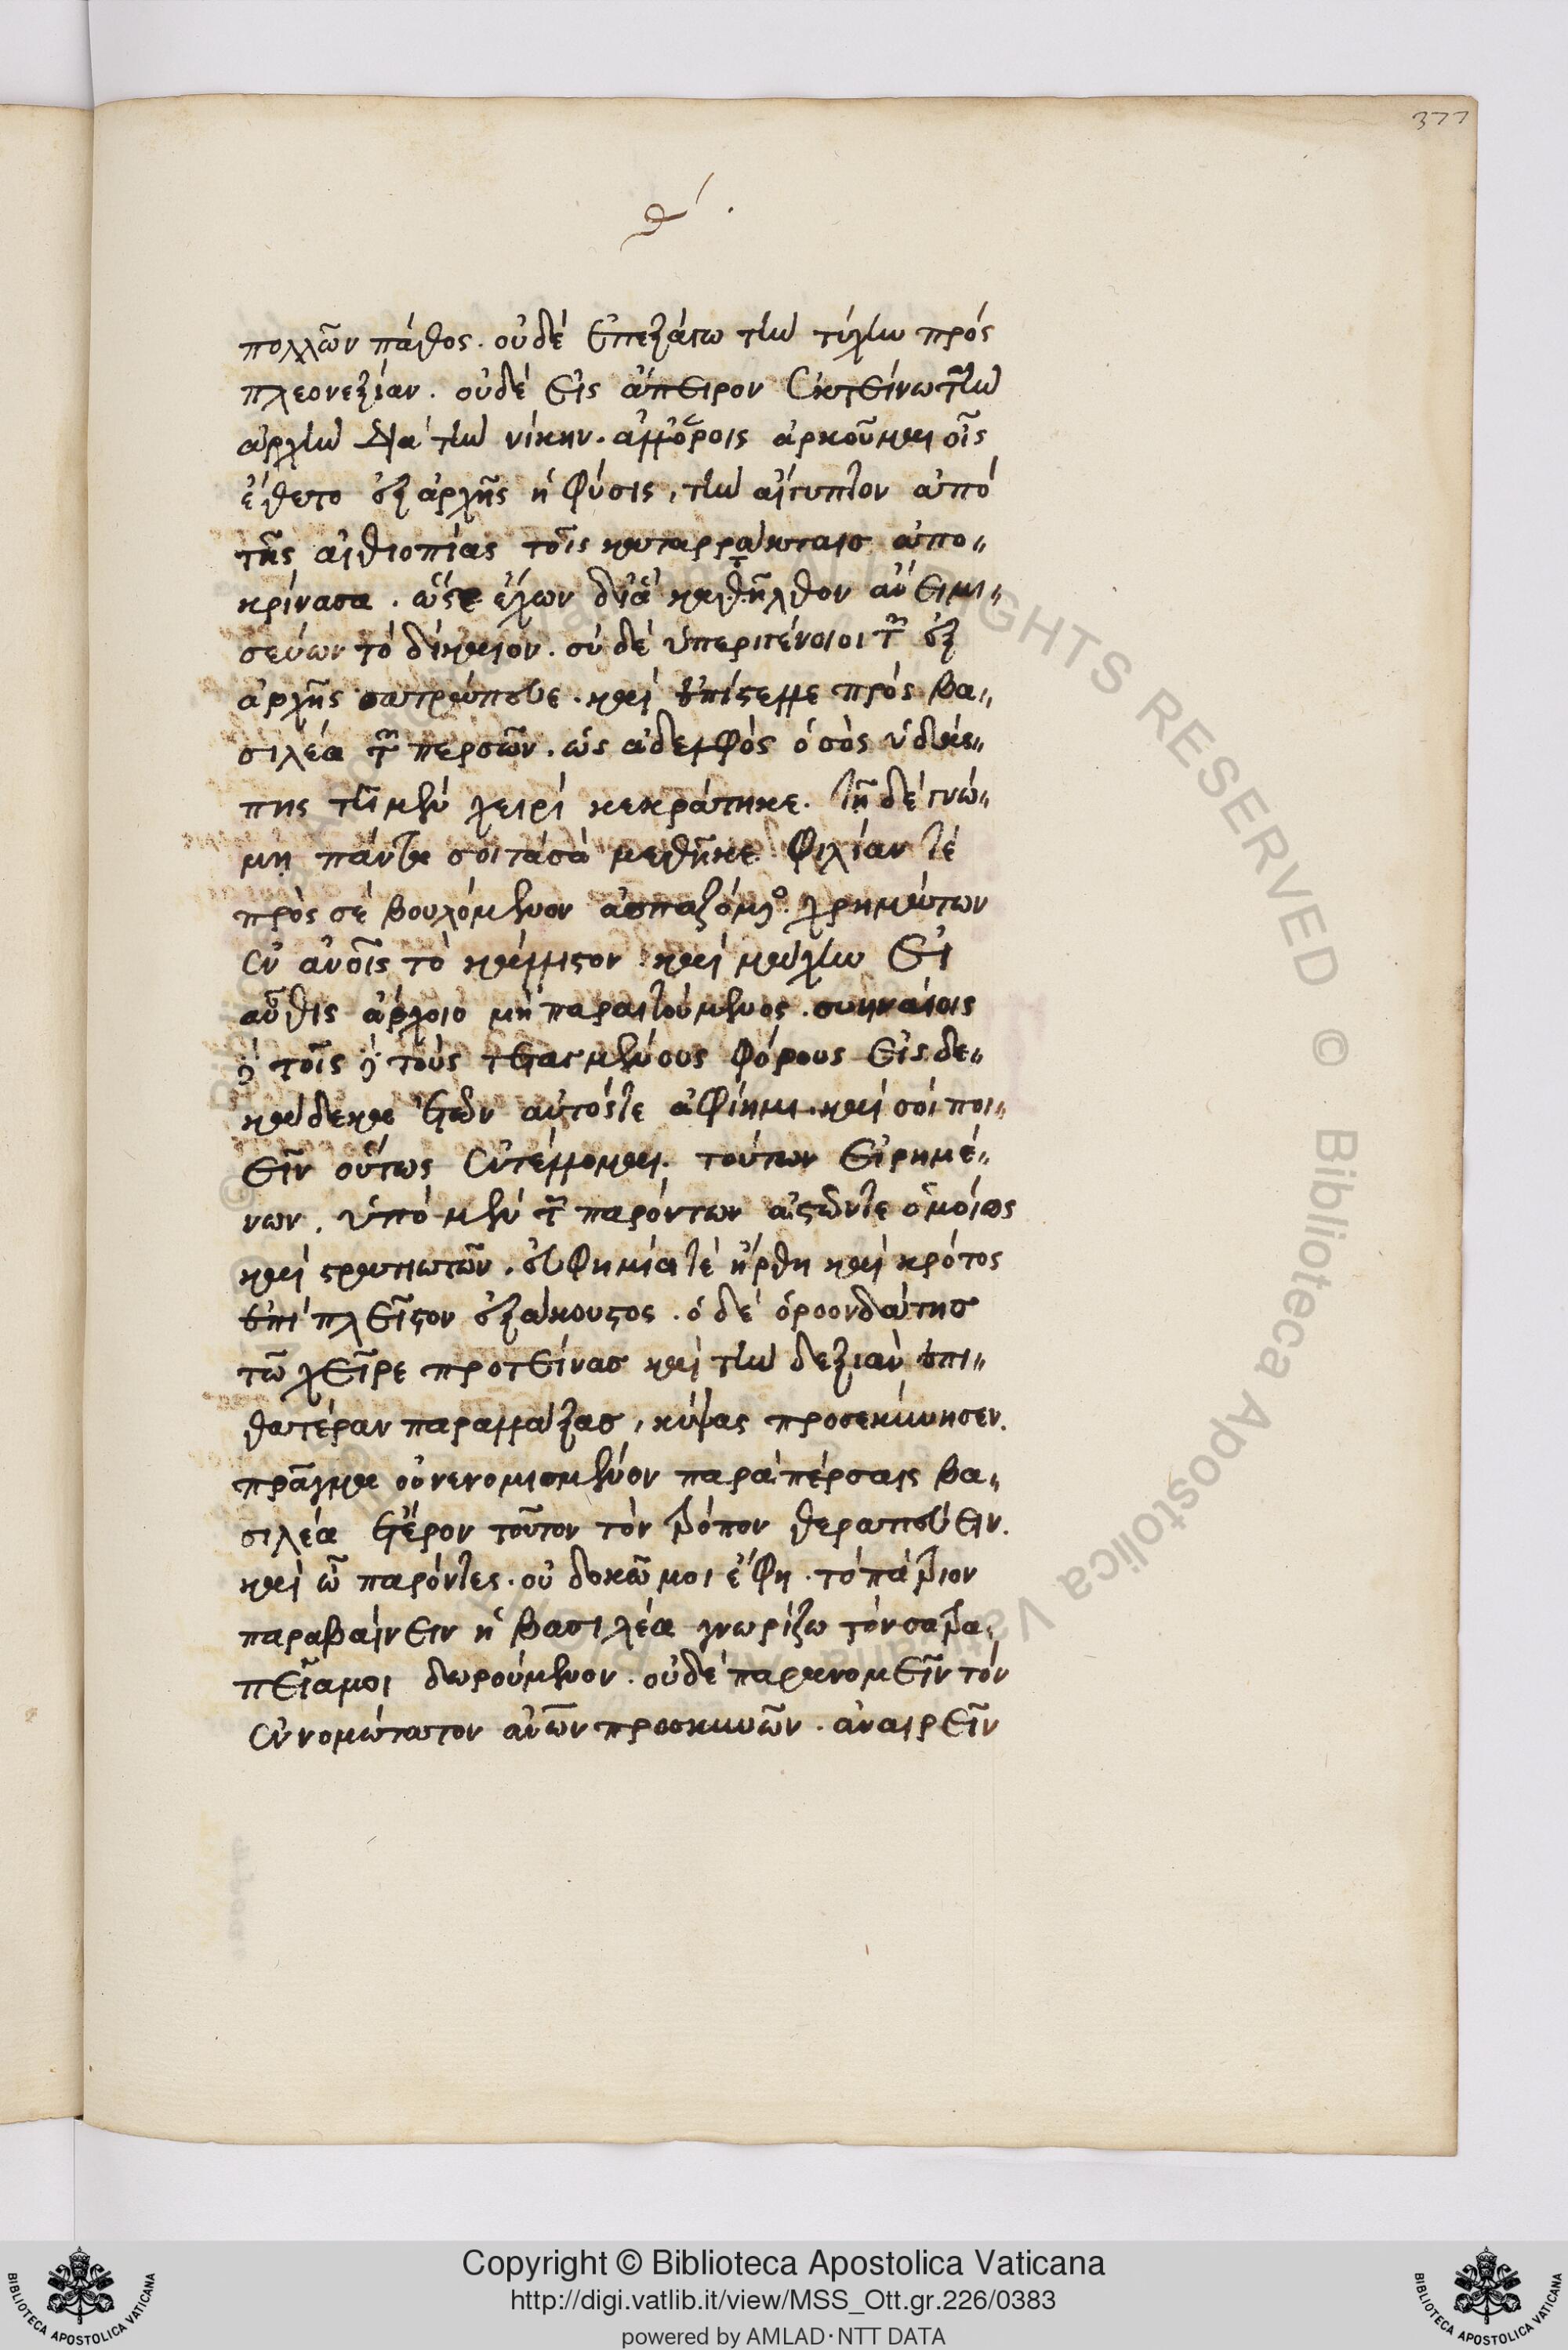 377
θ΄.
πολλῶν πάθος. οὐδὲ ἐπεξάγω τὴν τύχην πρὸς
πλεονεξίαν. οὐδὲ εἰς ἄπειρον ἐκτείνω τὴν
ἀρχὴν διὰ τὴν νίκην. ἀλλ' ὅροις ἀρκοῦμαι οἷς
ἔθετο ἐξ ἀρχῆς ἡ φύσις, τὴν αἴγυπτον ἀπὸ
τῆς αἰθιοπίας τοῖς καταρράκταισ ἀπο„
κρίνασα. ὥστε ἔχων δι' ἃ κατῆλθον ἄνειμι„
σεύων τὸ δίκαιον. σὺ δὲ ὑπεριγένοιοι τῶν ἐξ
ἀρχῆς σατράπευε. καὶ ἐπίστελλε πρὸς βα„
σιλέα τῶν περσῶν. ὡς ἀδελφὸς ὁ σὸς ὑδάς„
πης τῆ μὲν χειρὶ κεκράτηκε. τῆ δὲ γνώ„
μη πάντα σοι τὰ σὰ μεθῆκε. φιλίαν τὲ
πρὸς σὲ βουλόμενον ἀσπαζόμενος. χρημάτων
ἐν ἀνοῖς τὸ κάλλιστον καὶ μάχην εἰ
αὖθις ἄρχοιο μὴ παραιτούμενος. συηναίοις
δὲ τοῖς δὲ τοὺς τεταγμένους φόρους εἰς δε„
κάδεκα ἐτῶν αὐτός τε ἀφίημι. καὶ σοὶ ποι„
εῖν οὕτως ἐντέλλομαι. τούτων εἰρημέ„
νων, ὑπὸ μὲν τῶν παρόντων ἀστῶν τε ὁμοίως
καὶ στρατιωτῶν, εὐφημία τὲ ἤρθη καὶ κρότος
ἐπὶ πλεῖστον ἐξάκουστος. ὁ δὲ ὀροονδάτησ
τῶ χεῖρε προτείνασ καὶ τὴν δεξιὰν ἐπι„
θατέραν παραλλάξασ, κύψας προσεκύνησεν.
πρᾶγμα οὐ νενομισμένον παρὰ πέρσαις βα„
σιλέα ἕτερον τοῦτον τὸν τρόπον θεραπεύειν.
καὶ ὦ παρόντες. οὐ δοκῶ μοι ἔφη. τὸ πάτριον
παραβαίνειν ἢ βασιλέα γνωρίζω τὸν σατρα„
πεῖα μοι δωρούμενον. οὐδὲ παρανομεῖν τὸν
ἐννομώτατον ἀνῶν προσκυνῶν. ἀναιρεῖν
Copyright © Biblioteca Apostolica Vaticana
http://digi.vatlib.it/view/MSS_Ott.gr.226/0383
powered by AMLAD·NTT DATA